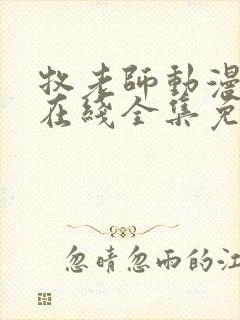 牧老師動漫
在綫全集免
忽晴忽雨的江